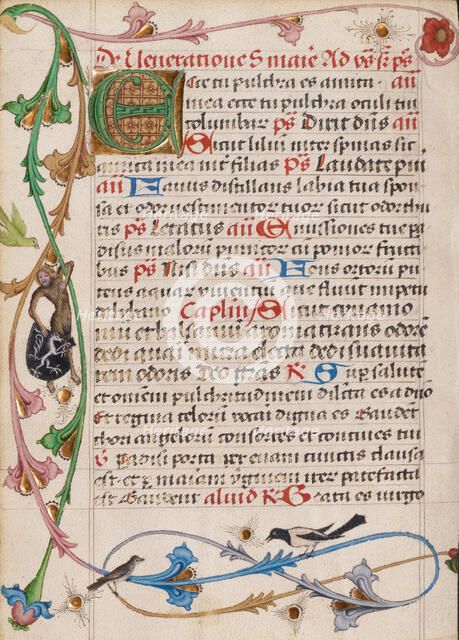 De Veneratione S marie Ad vs͞ ps͞
Ecce tu pulchra es amica añ
mea ecce tu pulchra oculi tui
columbar ps͞ Dixit dn͞s añ
Sicut lilium inter spinas sic
amica mea int͛ filias ps͞ Laudate pui
añ Favus distillans labia tua spon
sa et odor vestimentor tuor sicut odor thu
ris ps͞ Letatus añ Emissiones tue pa
disus malorum punicor cu͞ pomor fructi
bus ps͞ Nisi dn͞s añ Fons ortoru͞ pu
teus aquar viventiu͞ que fluu͞t impetu
de libano Caplm͞ Sicut cynamo
mu͞ et balsamu͞ aromatizans odore͞
dedi quasi mirra electa dedi suavita
tem odoris Deo gras R͛ Sup salute͞
et omne͞ pulchritudinem dilc͞ta es a dn͞o
Et regina celoru͞ vocari digna es Gaudet
chori angeloru͞ consortes et concives tui
V͛ padisi porta per evam cunctis clausa
est et p͛ maria͞ v͛gine͞ iterum patefacta
est Gaudent aliud R͛ Beata es virgo